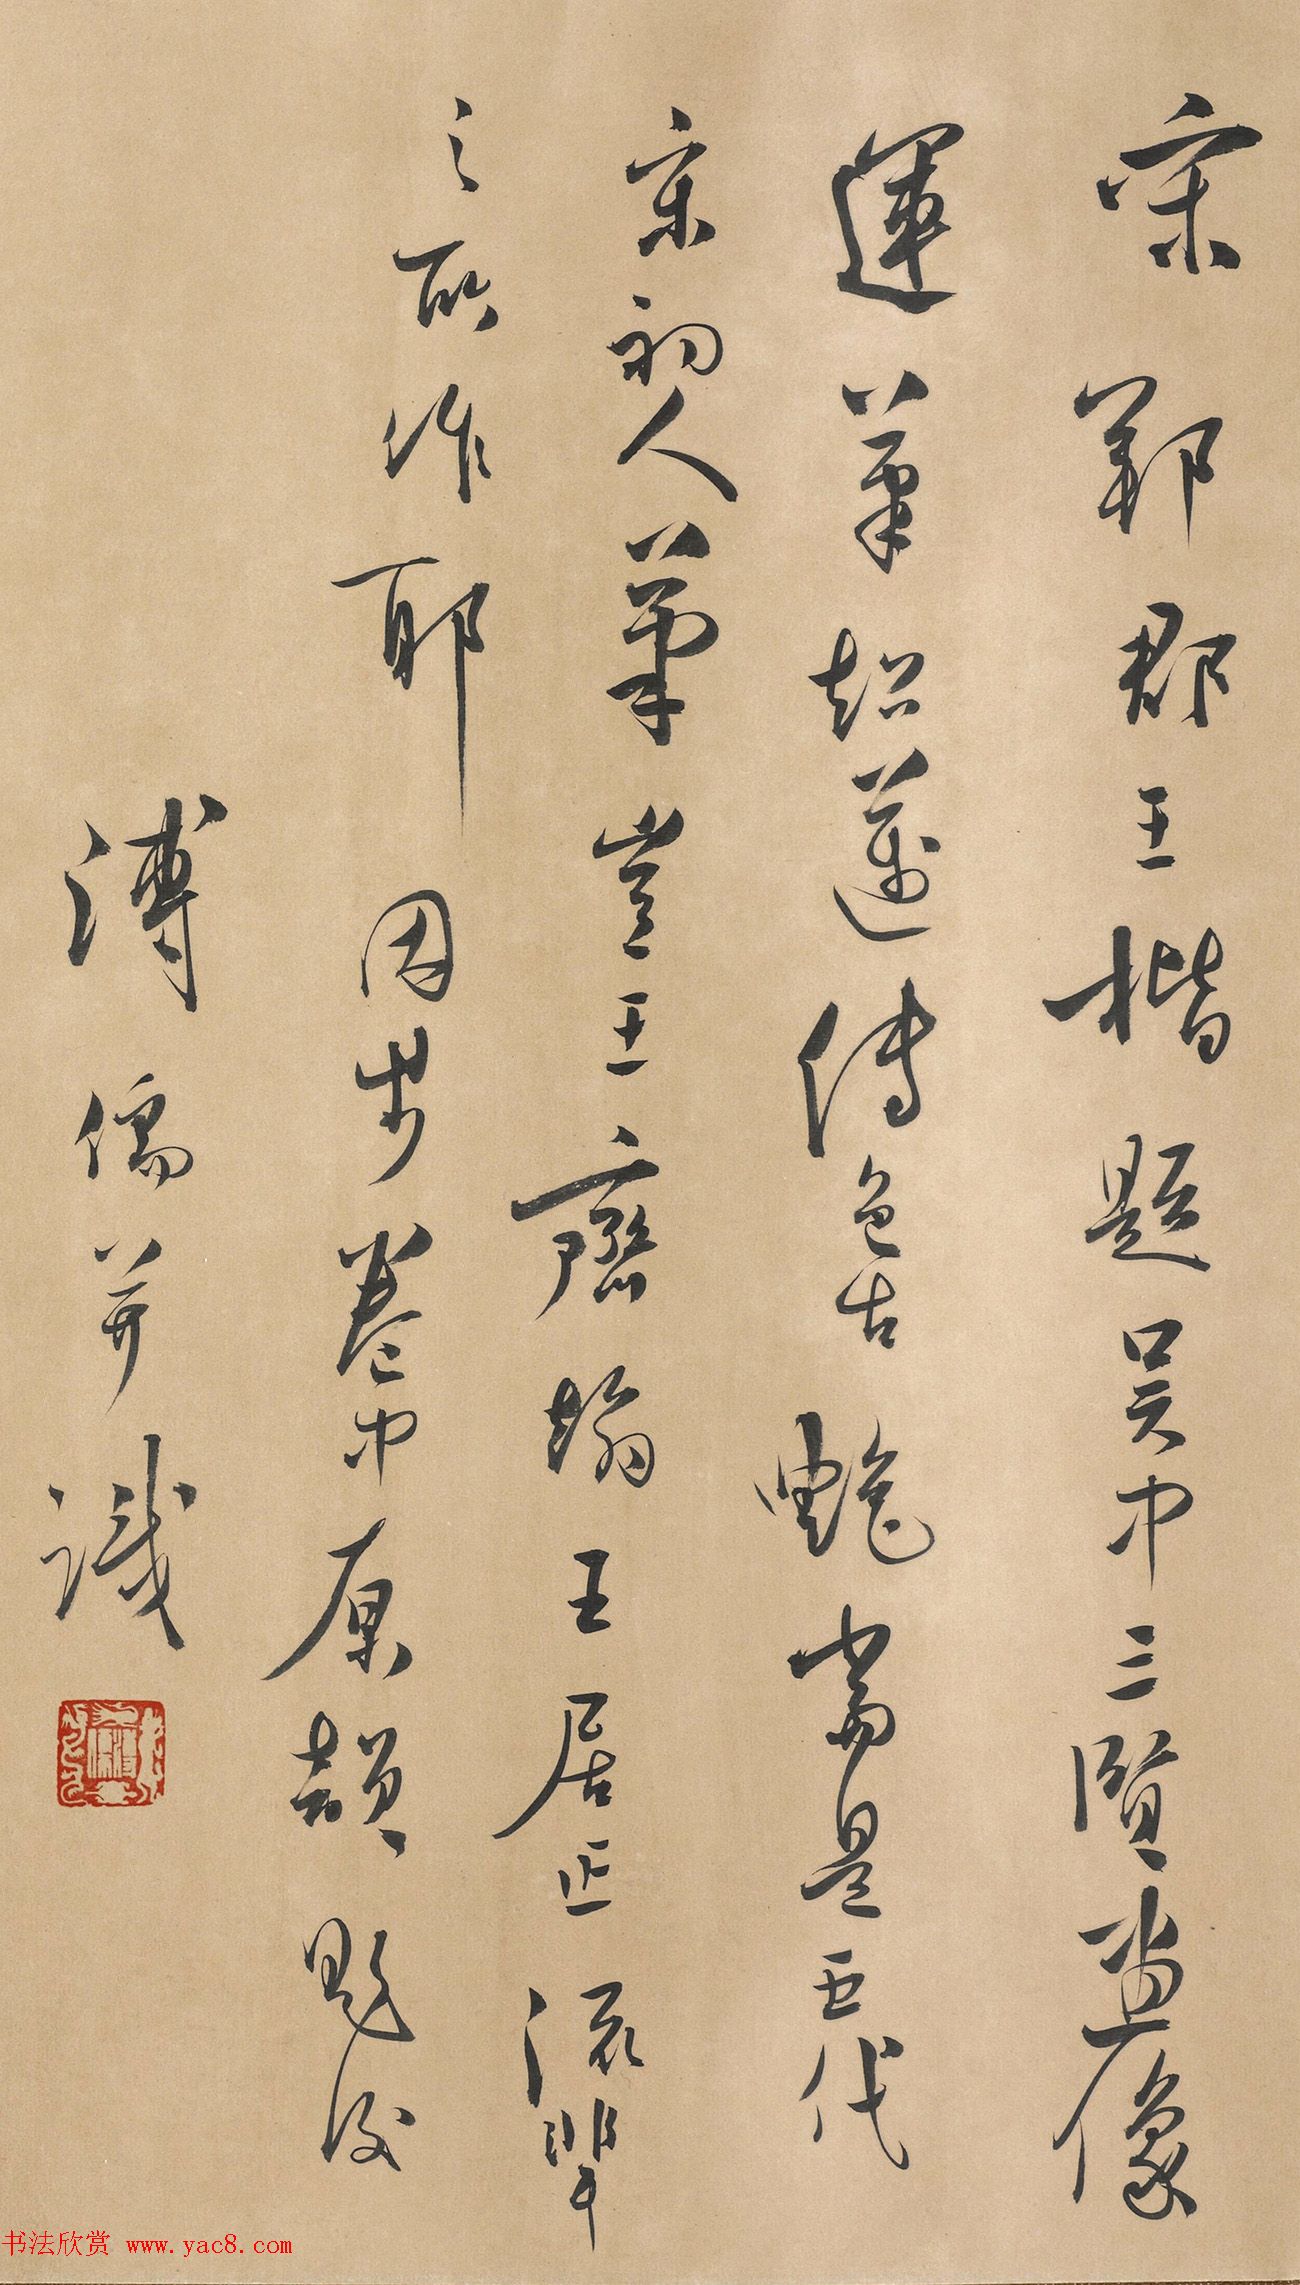 宋鄆郡王楷題吳中三賢畫像
運筆超邁傳色古艷當是五代
宋初人筆豈王齊翰王居正流輩
之所作耶因步卷中原韻題後
溥儒并識
书法欣赏 www.yac8.com